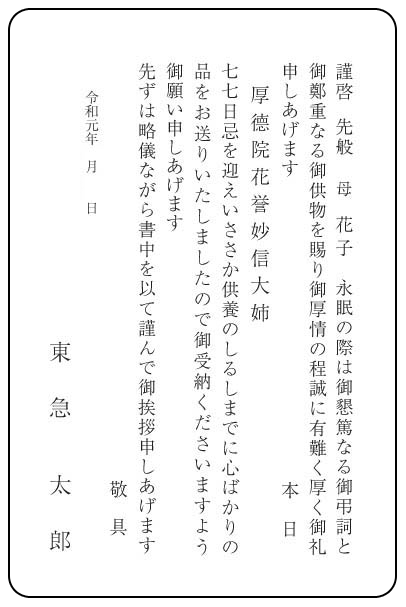 謹啓　先般　母　花子　永眠の際は御懇篤なる御弔詞と
御鄭重なる御供物を賜り御厚情の程誠に有難く厚く御礼
申しあげます　本日
厚徳院花誉妙信大姉
七七日忌を迎えいささか供養のしるしまでに心ばかりの
品をお送りいたしましたので御受納くださいますよう
御願い申しあげます
先ずは略儀ながら書中を以て謹んで御挨拶申しあげます
敬具
令和元年　月　日
東急　太郎